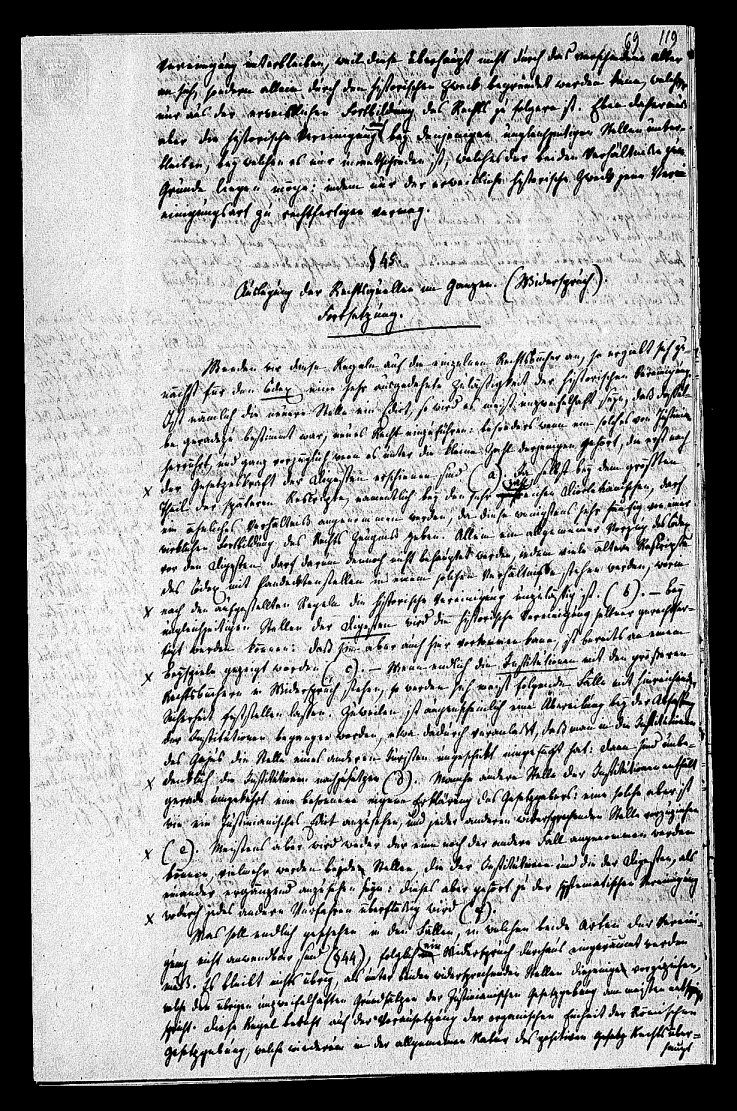 69 119
Vereinigung unterbleiben, weil diese überhaupt nicht durch das verschiedene Alter
an sich, sondern allein durch den historischen Zweck begründet werden kann, welcher
nur aus der erweislichen Fortbildung des Rechts zu folgern ist. Eben daher muß
aber die historische Vereinigung auch bey denjenigen ungleichzeitigen Stellen unter-
bleiben, bey welchen es nur unentschieden ist, welches der beiden Verhältnisse zum
Grunde liegen möge: indem nur der erweisliche historische Zweck jene Verei-
nigungsart zu rechtfertigen vermag.
§ 45.
Auslegung der Rechtsquellen im Ganzen. (Widerspruch).
Fortsetzung.
Wenden wir diese Regeln auch auf die einzelnen Rechtsbücher an, so ergiebt sich zu-
nächst für den Codex eine sehr ausgedehnte Zulässigkeit der historischen Vereinigung.
Ist nämlich die neuere Stelle ein Edict, so wird es meist unzweifelhaft seyn, daß dassel-
be geradezu bestimmt war, neues Recht einzuführen: besonders wenn ein solches von Justinian
herrührt, und ganz vorzüglich wenn es unter die kleine Zahl derjenigen gehört, die erst nach
x der Gesetzeskraft der Digesten erschienen sind (a). Ja selbst bey dem größten
Theil der späteren Rescripte, namentlich bey den sehr zahlreichen Diocletianischen, darf
ein ähnliches Verhältniß angenommen werden, da diese wenigstens sehr häufig von einer
wirklichen Fortbildung des Rechts Zeugniß geben. Allein ein allgemeiner Vorzug des Codex
vor den Digesten darf darum dennoch nicht behauptet werden, indem viele ältere Rescripte
des Codex mit Pandektenstellen in einem solchen Verhältnisse stehen werden, worin
x nach den aufgestellten Regeln die historische Vereinigung unzulässig ist. (b). – Bey
ungleichzeitigen Stellen der Digesten wird die historische Vereinigung seltener gerechtfer-
tigt werden können: daß sie aber auch hier vorkommen kann, ist bereits an einem
x Beyspiele gezeigt worden (c). – Wenn endlich die Institutionen mit den größeren
Rechtsbüchern in Widerspruch stehen, so werden sich meist folgende Fälle mit hinreichender
Sicherheit feststellen lassen. Zuweilen ist augenscheinlich eine Übereilung bey der Abfassung
der Institutionen begangen worden, etwa dadurch veranlaßt, daß man in die Institutionen
des Gajus die Stelle eines anderen Juristen ungeschickt eingefügt hat: dann sind unbe-
x denklich die Institutionen nachzusetzen (d). Manche andere Stelle der Institutionen enthält
gerade umgekehrt eine besonnene eigene Erklärung des Gesetzgebers: eine solche aber ist
wie ein Justinianisches Edict anzusehen, und jeder anderen widersprechenden Stelle vorzuziehen
x (e). Meistens aber wird weder der eine noch der andere Fall angenommen werden
können, vielmehr werden beide Stellen, die der Institutionen und die der Digesten, als
einander ergänzend anzusehen seyn: dieses aber gehört zu der systematischen Vereinigung
x wodurch jedes andere Verfahren überflüssig wird (f).
Was soll endlich geschehen in den Fällen, in welchen beide Arten der Verei-
nigung nicht anwendbar sind (§ 44), folglich ein Widerspruch durchaus eingeräumt werden
muß. Es bleibt nichts übrig, als unter beiden widersprechenden Stellen diejenige vorzuziehen,
welche den übrigen unzweifelhaften Grundsätzen der Justinianischen Gesetzgebung am meisten ent-
spricht. Diese Regel beruht auf der Voraussetzung der organischen Einheit der Römischen
Gesetzgebung, welche wiederum in der allgemeinen Natur des positiven Rechts über-
haupt